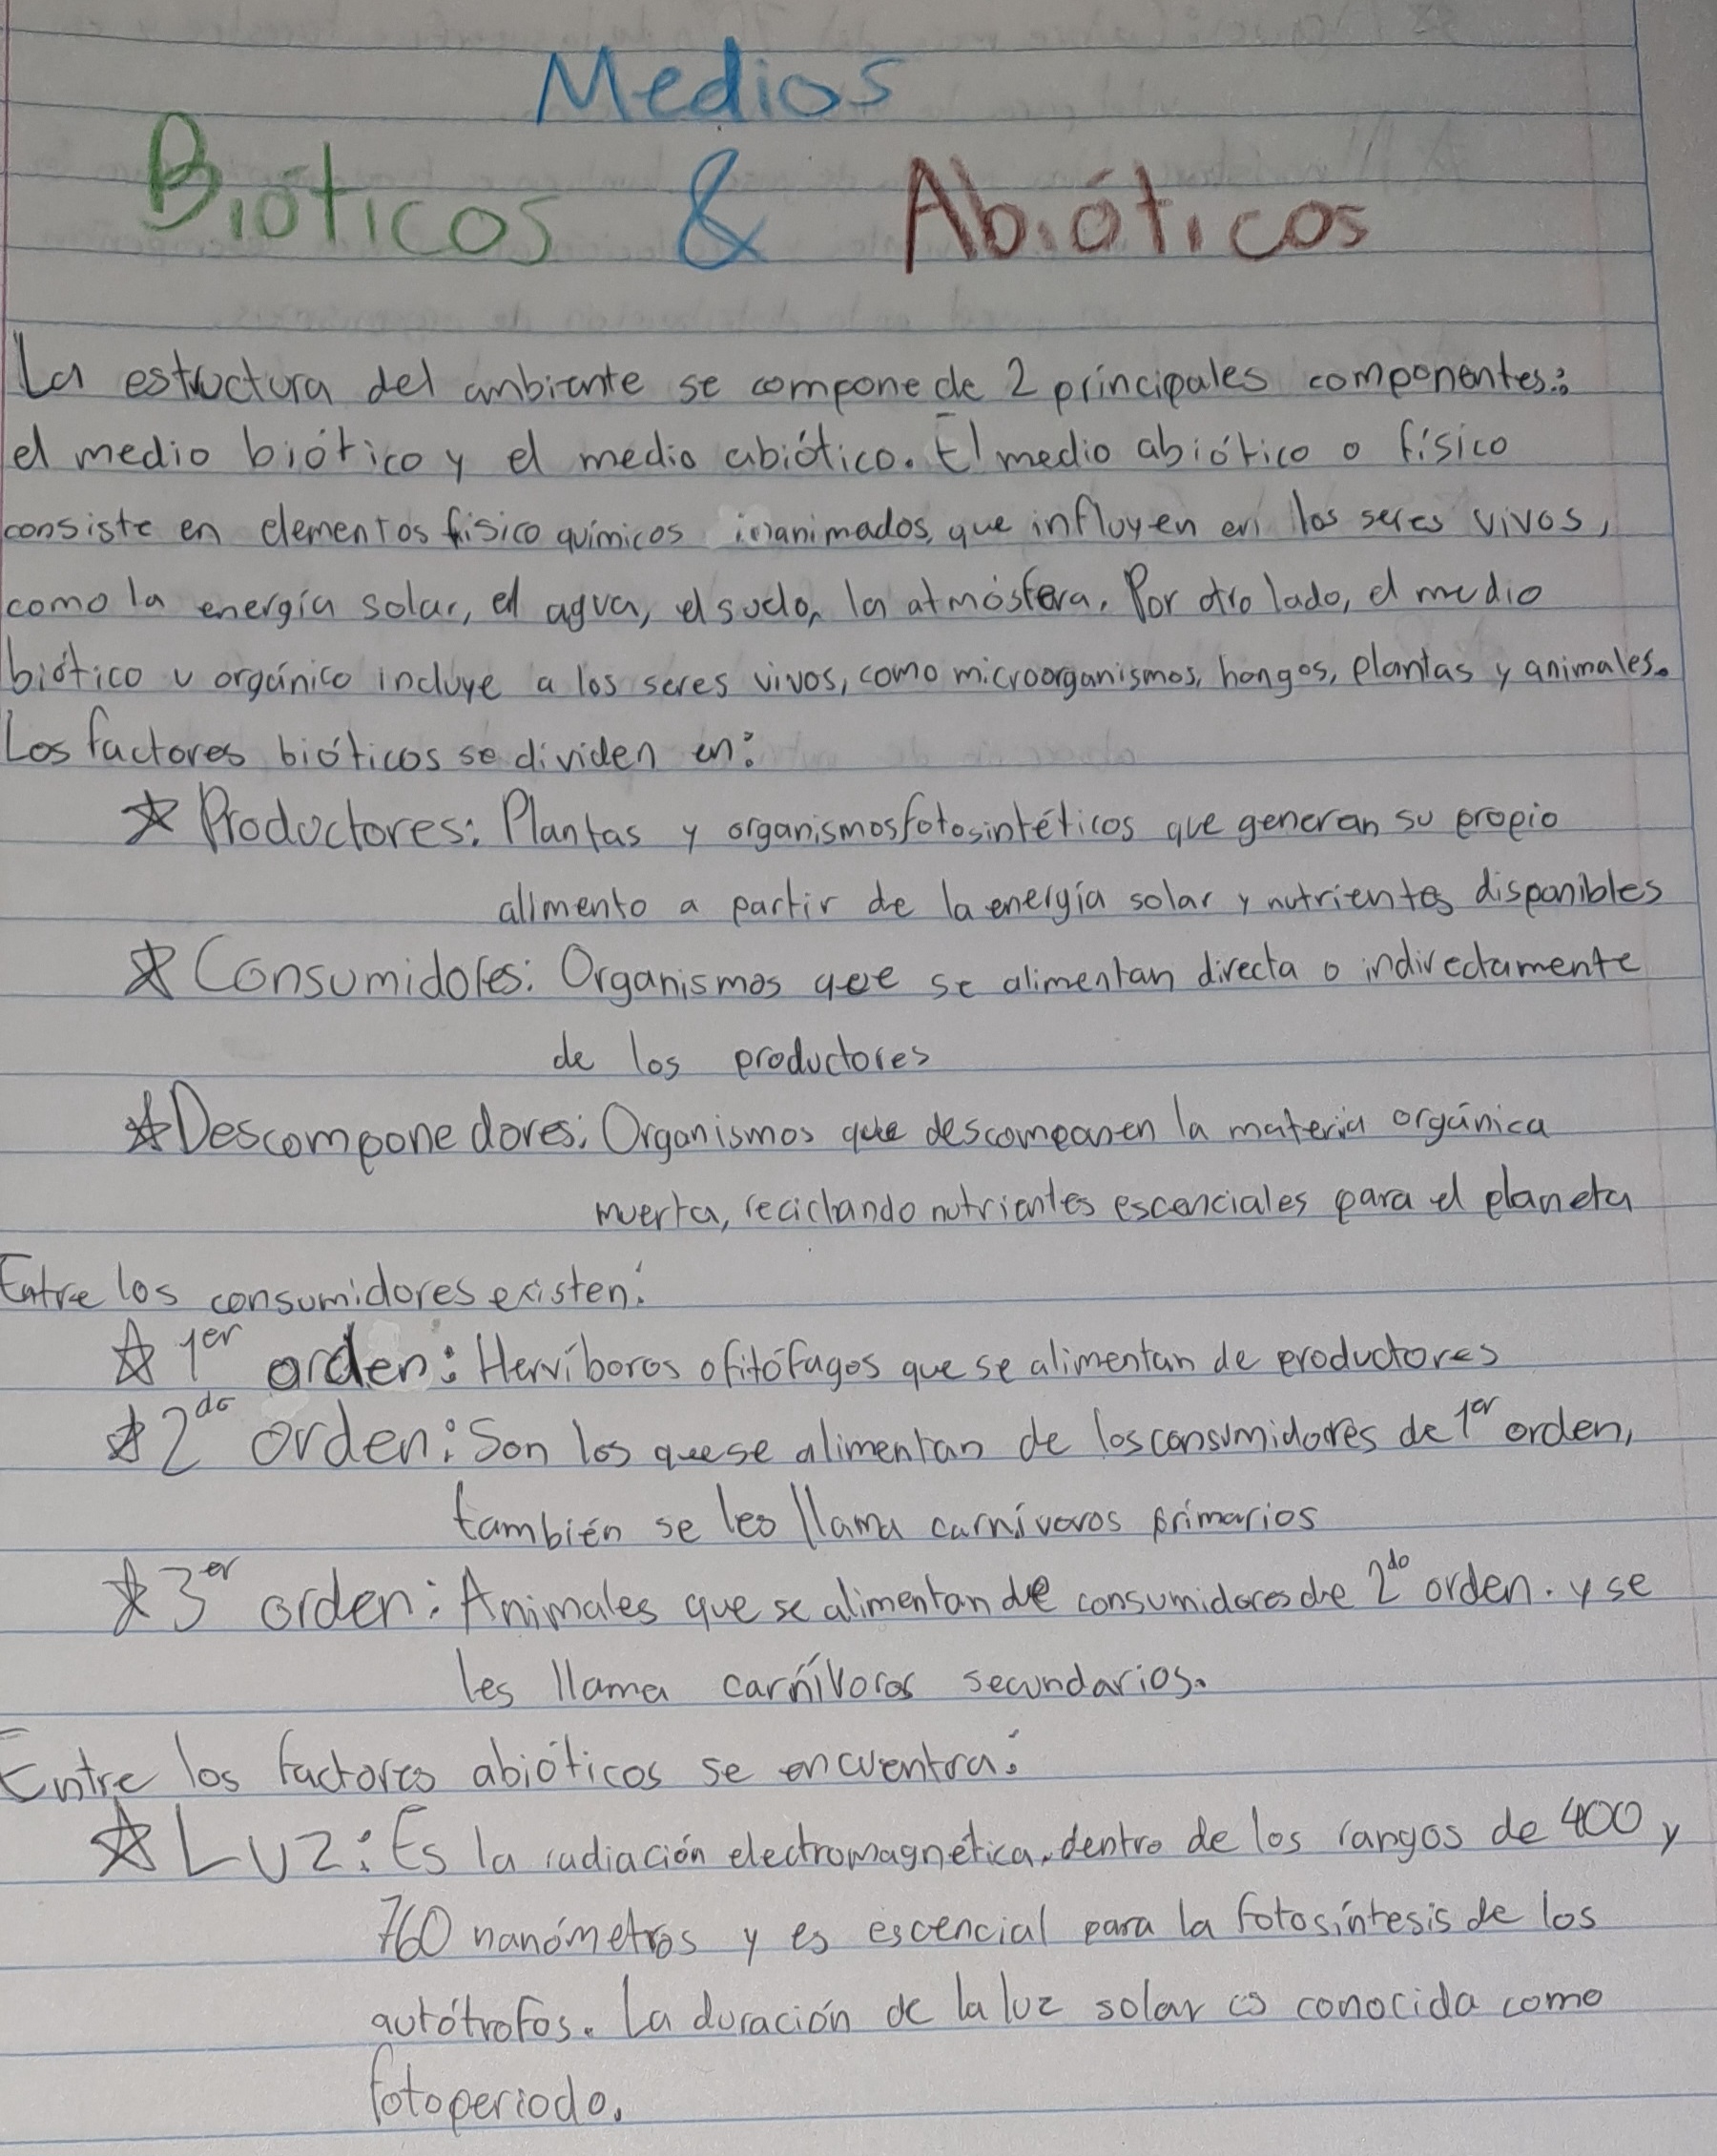 Medios
Bióticos & Abióticos
La estructura del ambiente se compone de 2 principales componentes:
el medio biótico y el medio abiótico. El medio abiótico o físico
consiste en elementos físico químicos inanimados, que influyen en los seres vivos,
como la energía solar, el agua, el suelo, la atmósfera. Por otro lado, el medio
biótico u orgánico incluye a los seres vivos, como microorganismos, hongos, plantas y animales.
Los factores bióticos se dividen en:
☆ Productores: Plantas y organismos fotosintéticos que generan su propio
alimento a partir de la energía solar y nutrientes disponibles
☆ Consumidores: Organismos que se alimentan directa o indirectamente
de los productores
☆ Descomponedores: Organismos que descomponen la materia orgánica
muerta, reciclando nutrientes escenciales para el planeta
Entre los consumidores existen:
☆ 1er orden: Hervíboros o fitófagos que se alimentan de productores
☆ 2do orden: Son los que se alimentan de los consumidores de 1er orden,
también se les llama carnívoros primarios
☆ 3er orden: Animales que se alimentan de consumidores de 2do orden. y se
les llama carnívoros secundarios.
Entre los factores abióticos se encuentra:
☆ Luz: Es la radiación electromagnética, dentro de los rangos de 400 y
760 nanómetros y es escencial para la fotosíntesis de los
autótrofos. La duración de la luz solar es conocida como
fotoperiodo.